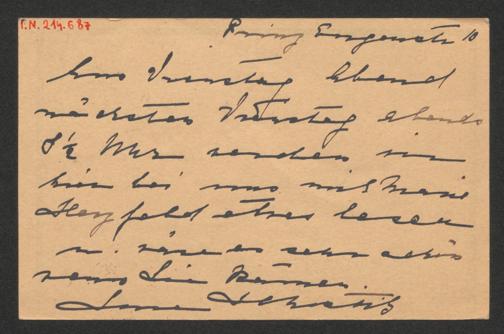 I.N. 214.687
Prinz Eugenstr 10
Dienstag Abend
nächsten Dienstag abends
8½ Uhr werden wir
hier bei uns mit Marie
Herzfeld etwas lesen
u. wäre es sehr schön
wenn Sie kämen.